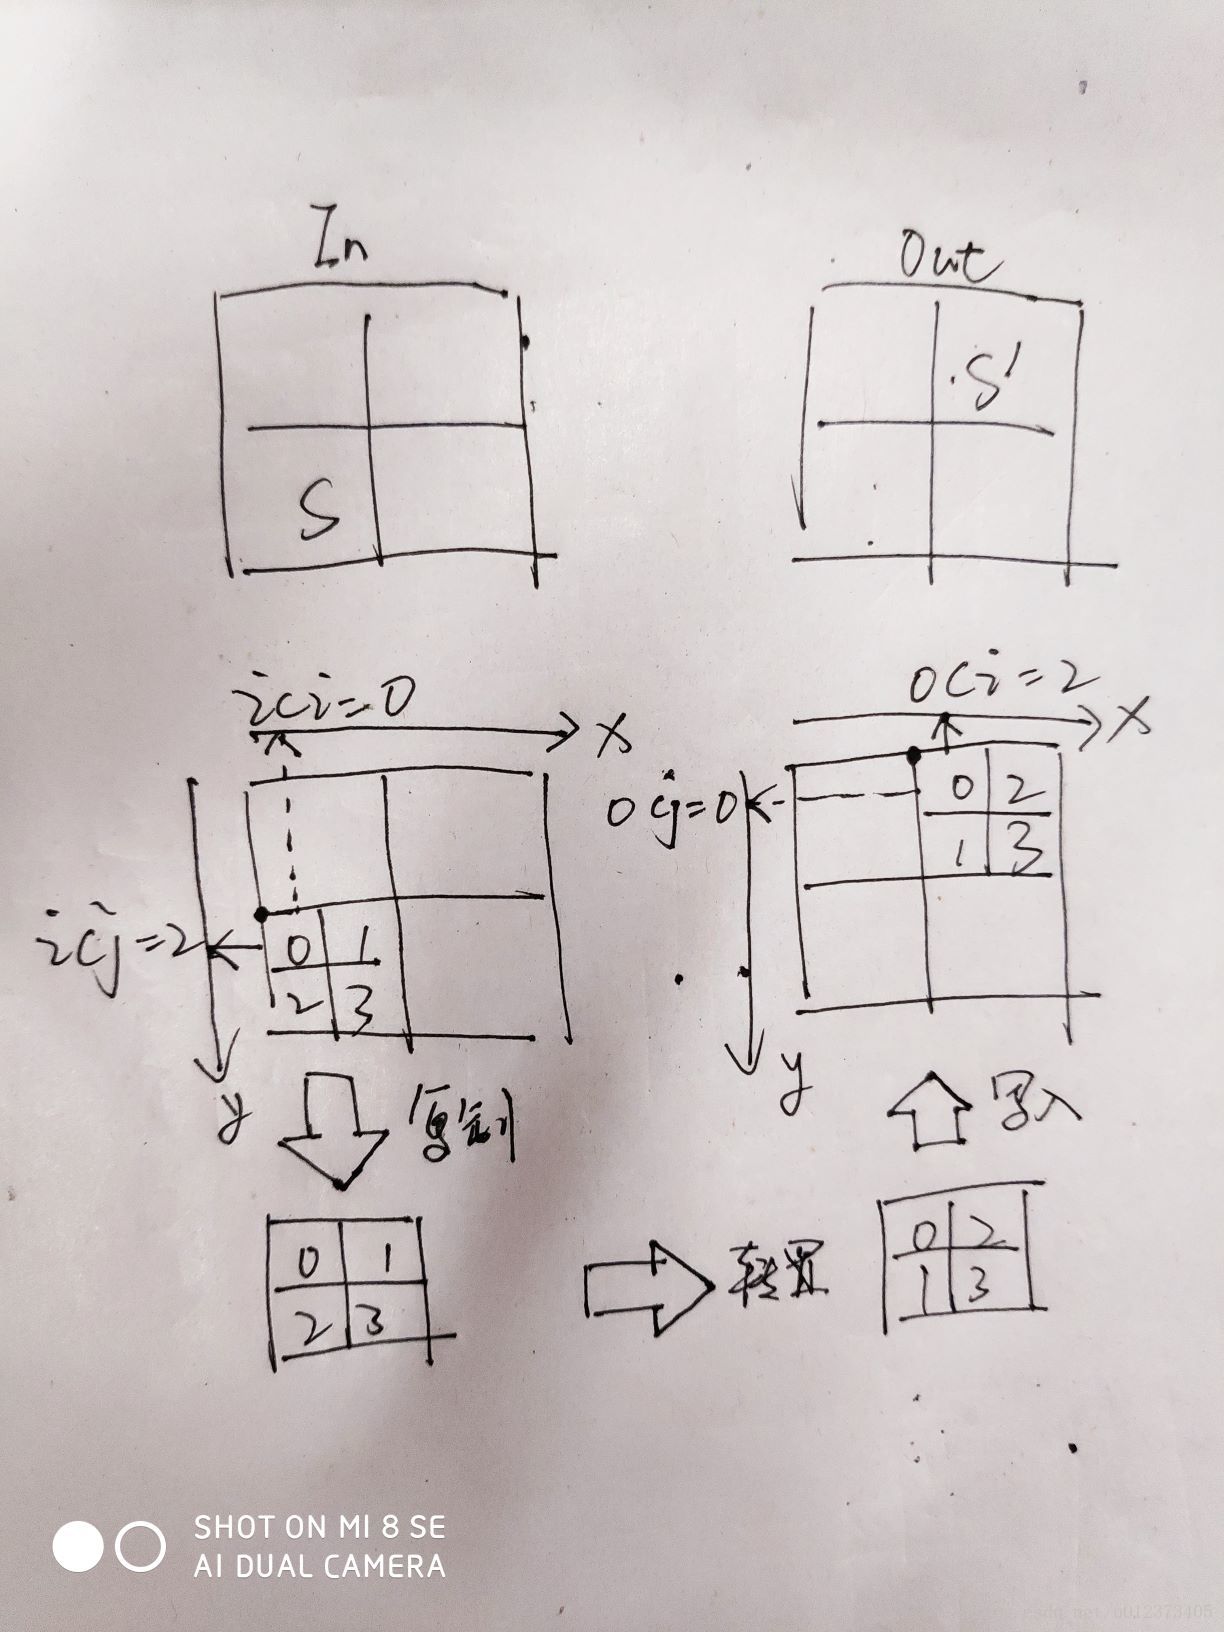 In
Out
S
S'
ici=0
X
oci=2
X
ocj=0
0 2
1 3
icj=2
0 1
2 3
y
复制
y
写入
0 1
2 3
转置
0 2
1 3
SHOT ON MI 8 SE
AI DUAL CAMERA